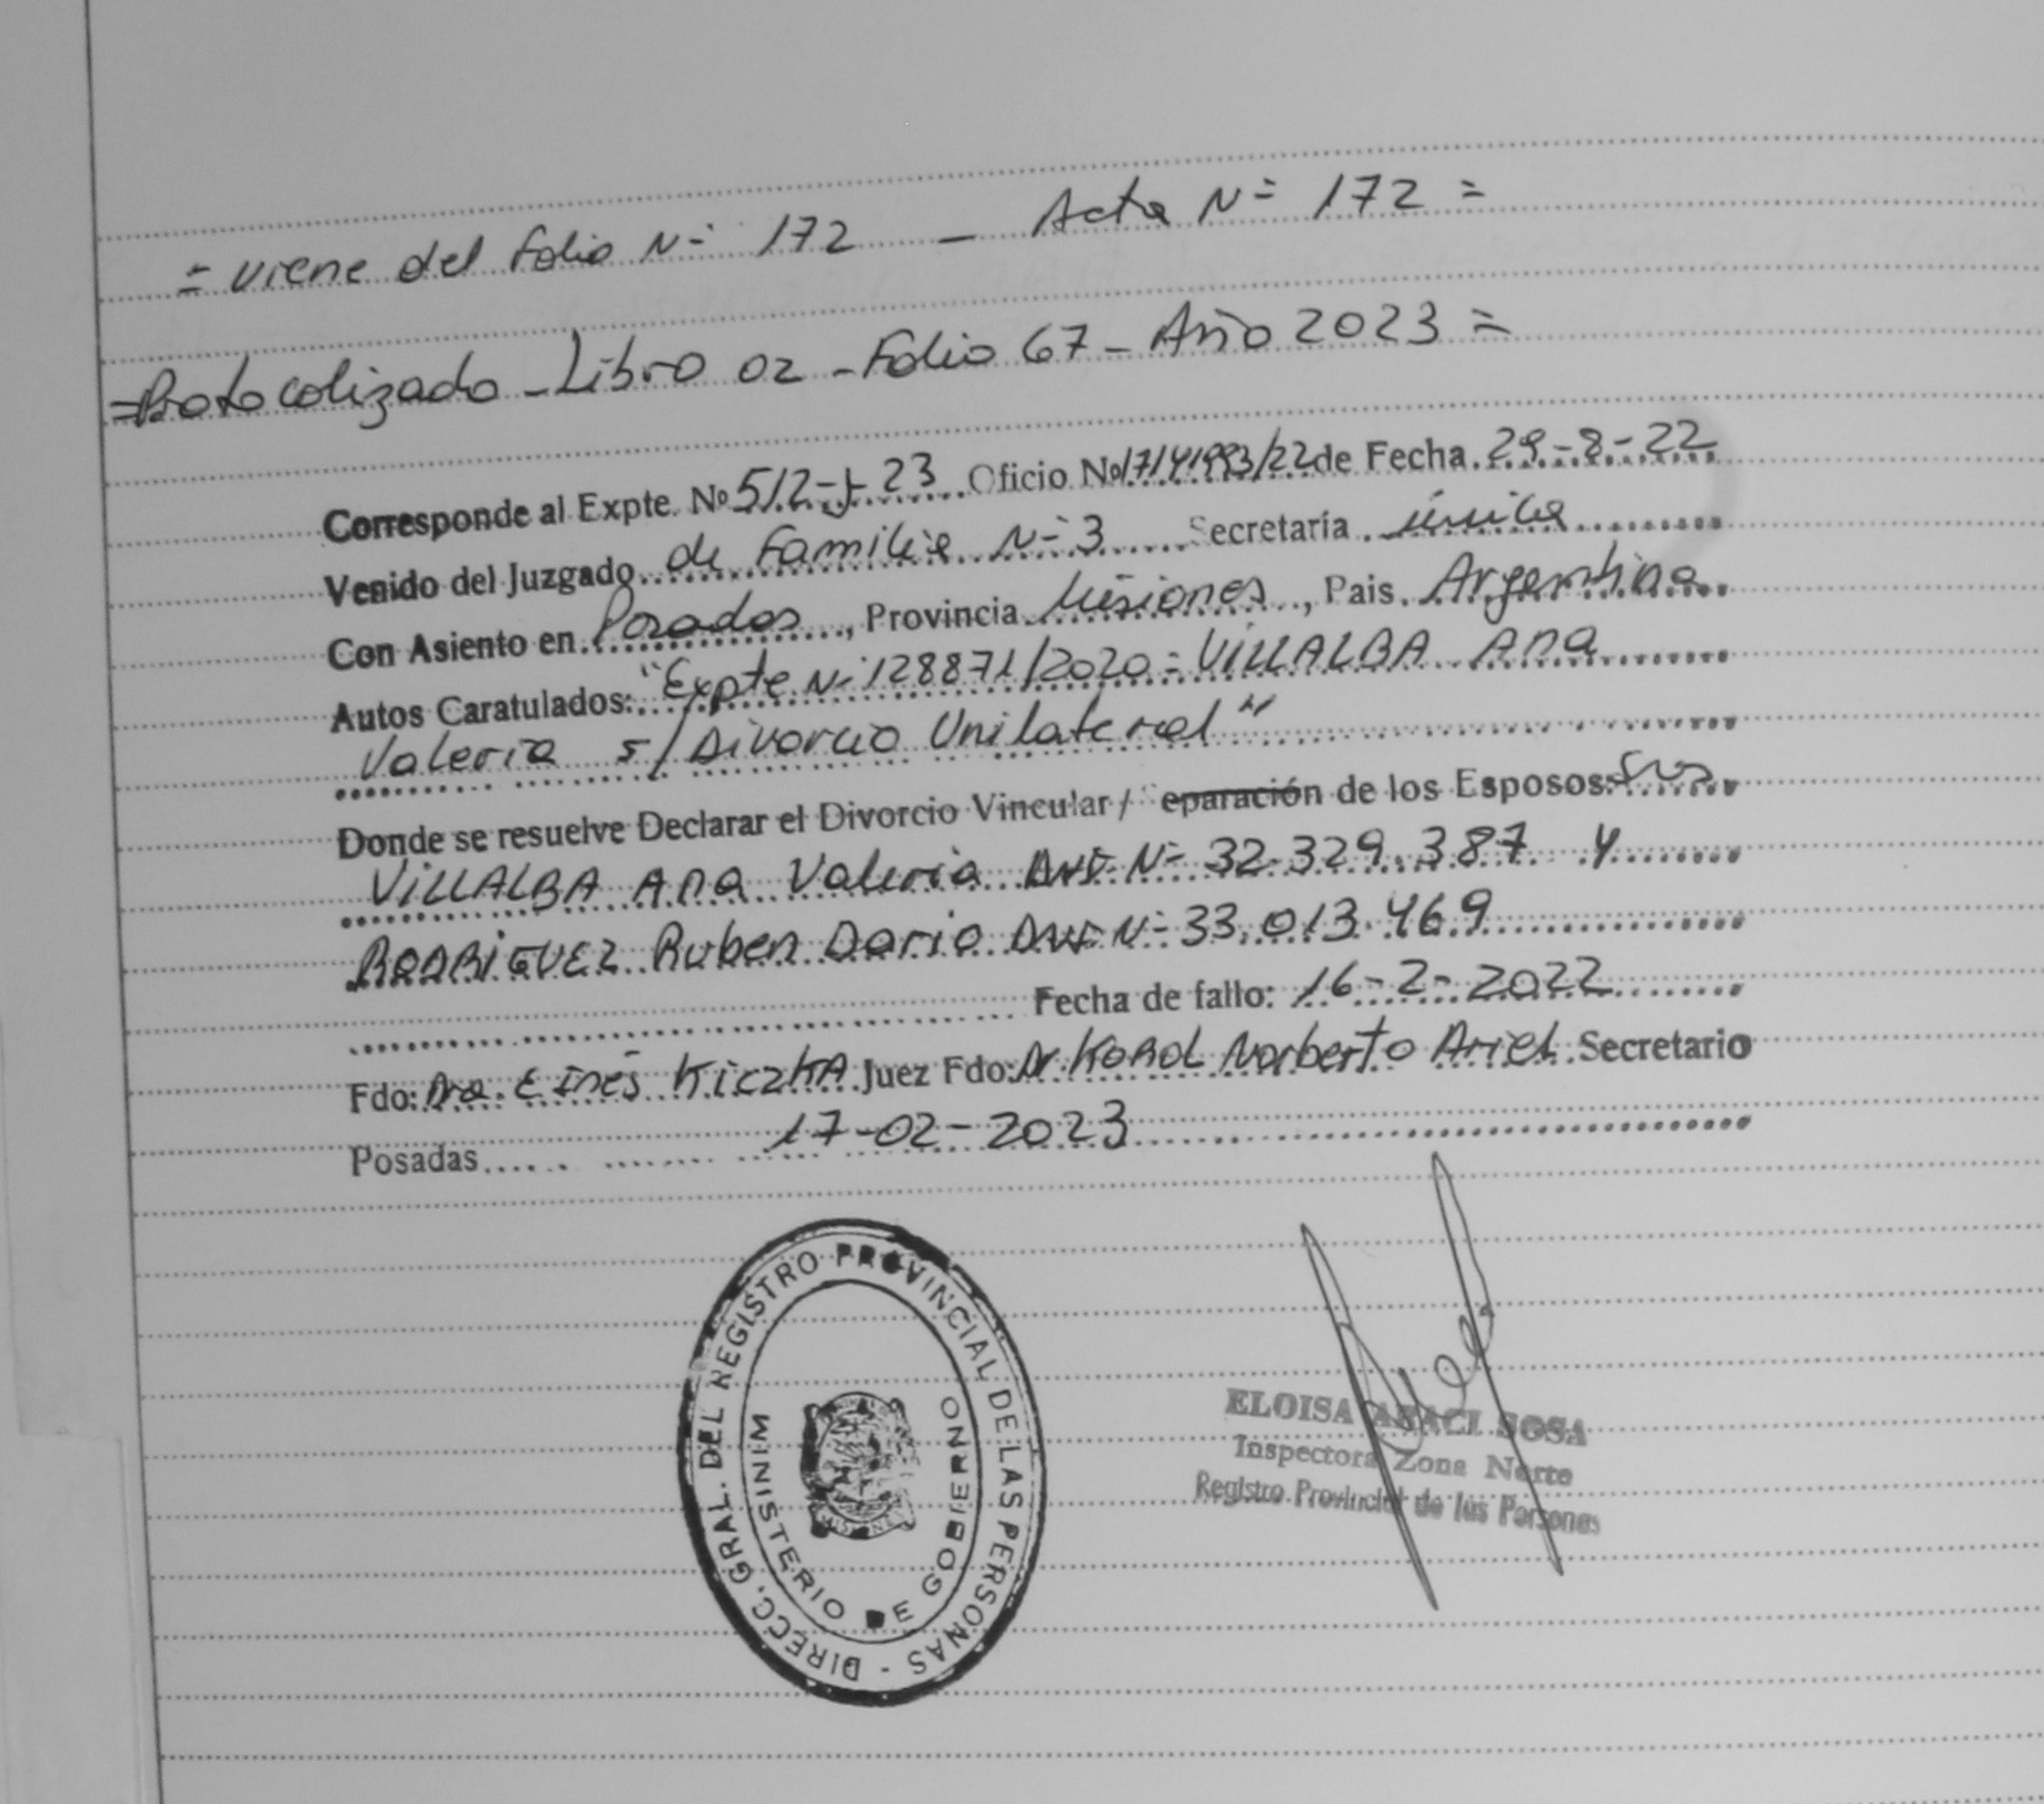 = viene del folio Nº 172 - Acta Nº 172 =
= Protocolizado - Libro 02 - Folio 67 - Año 2023 =
Corresponde al Expte. Nº 512-J-23 Oficio Nº 17141993/22 de Fecha 29-8-22
Venido del Juzgado de Familia Nº 3 Secretaría única
Con Asiento en Posadas, Provincia Misiones, Pais Argentina
Autos Caratulados: "Expte Nº 128871/2020 = VILLALBA Ana
Valeria s/ Divorcio Unilateral"
Donde se resuelve Declarar el Divorcio Vincular / eparación de los Esposos:
VILLALBA Ana Valeria DNI Nº 32.329.387 y
RODRIGUEZ Ruben Dario DNI Nº 33.013.469
Fecha de fallo: 16-2-2022
Fdo: Dra. E Inés KiczkA Juez Fdo: Dr KOROL Norberto Ariel Secretario
Posadas 17-02-2023
DIRECC. GRAL. DEL REGISTRO PROVINCIAL DE LAS PERSONAS -
MINISTERIO DE GOBIERNO
MISIONES
ELOISA ARACI SOSA
Inspectora Zona Norte
Registro Provincial de las Personas